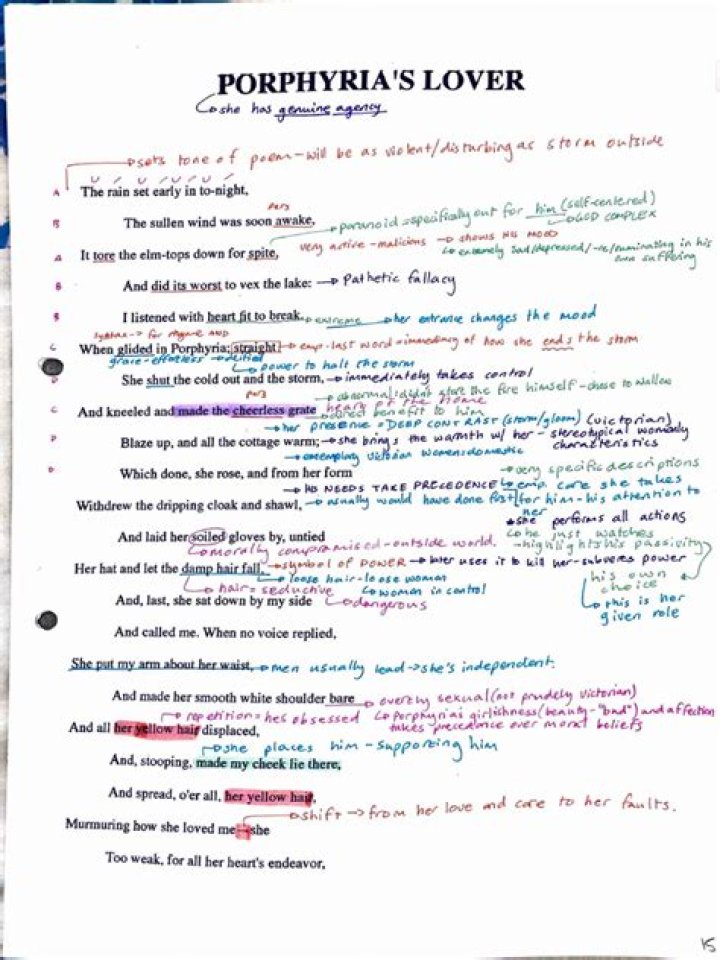 PORPHYRIA'S LOVER
↳ she has genuine agency
→ sets tone of poem - will be as violent/disturbing as storm outside
A The rain set early in to-night,
pers
B The sullen wind was soon awake,
→ paranoid = specifically out for him (self-centered)
↳ GOD COMPLEX
A It tore the elm-tops down for spite,
very active - malicious → shows his mood
↳ extremely sad/depressed/-ve/ruminating in his own suffering
B And did its worst to vex the lake: → Pathetic fallacy
B I listened with heart fit to break. → extreme → her entrance changes the mood
syntax → for rhyme AND
C When glided in Porphyria; straight → emp - last word = immediacy of how she ends the storm
grace - effortless
↳ power to halt the storm
D She shut the cold out and the storm, → immediately takes control
pers
→ abnormal: didn't start the fire himself - chose to wallow
heart of the home
C And kneeled and made the cheerless grate
→ direct benefit to him
→ her presence = DEEP CONTRAST (storm/gloom) (victorian)
D Blaze up, and all the cottage warm; → she brings the warmth w/ her - stereotypical womanly characteristics
→ exemplary victorian women: domestic
D Which done, she rose, and from her form
→ very specific descriptions
→ HIS NEEDS TAKE PRECEDENCE → emp. care she takes
Withdrew the dripping cloak and shawl, → usually would have done first for him - his attention to her
* she performs all actions
And laid her soiled gloves by, untied
↳ he just watches
→ morally compromised - outside world.
- highlights his passivity
Her hat and let the damp hair fall, → symbol of POWER → later uses it to kill her - subverts power
→ loose hair - loose woman
his own choice
→ hair = seductive
↳ women in control
And, last, she sat down by my side
↳ dangerous
↳ this is her given role
And called me. When no voice replied,
She put my arm about her waist, → men usually lead → she's independent.
And made her smooth white shoulder bare → overtly sexual (not prudely victorian)
→ repetition = hes obsessed
↳ Porphyrias girlishness (beauty - "bad") and affection takes precedence over moral beliefs
And all her yellow hair displaced,
→ she places him - supporting him
And, stooping, made my cheek lie there,
And spread, o'er all, her yellow hair,
→ shift → from her love and care to her faults.
Murmuring how she loved me — she
Too weak, for all her heart's endeavor,
15